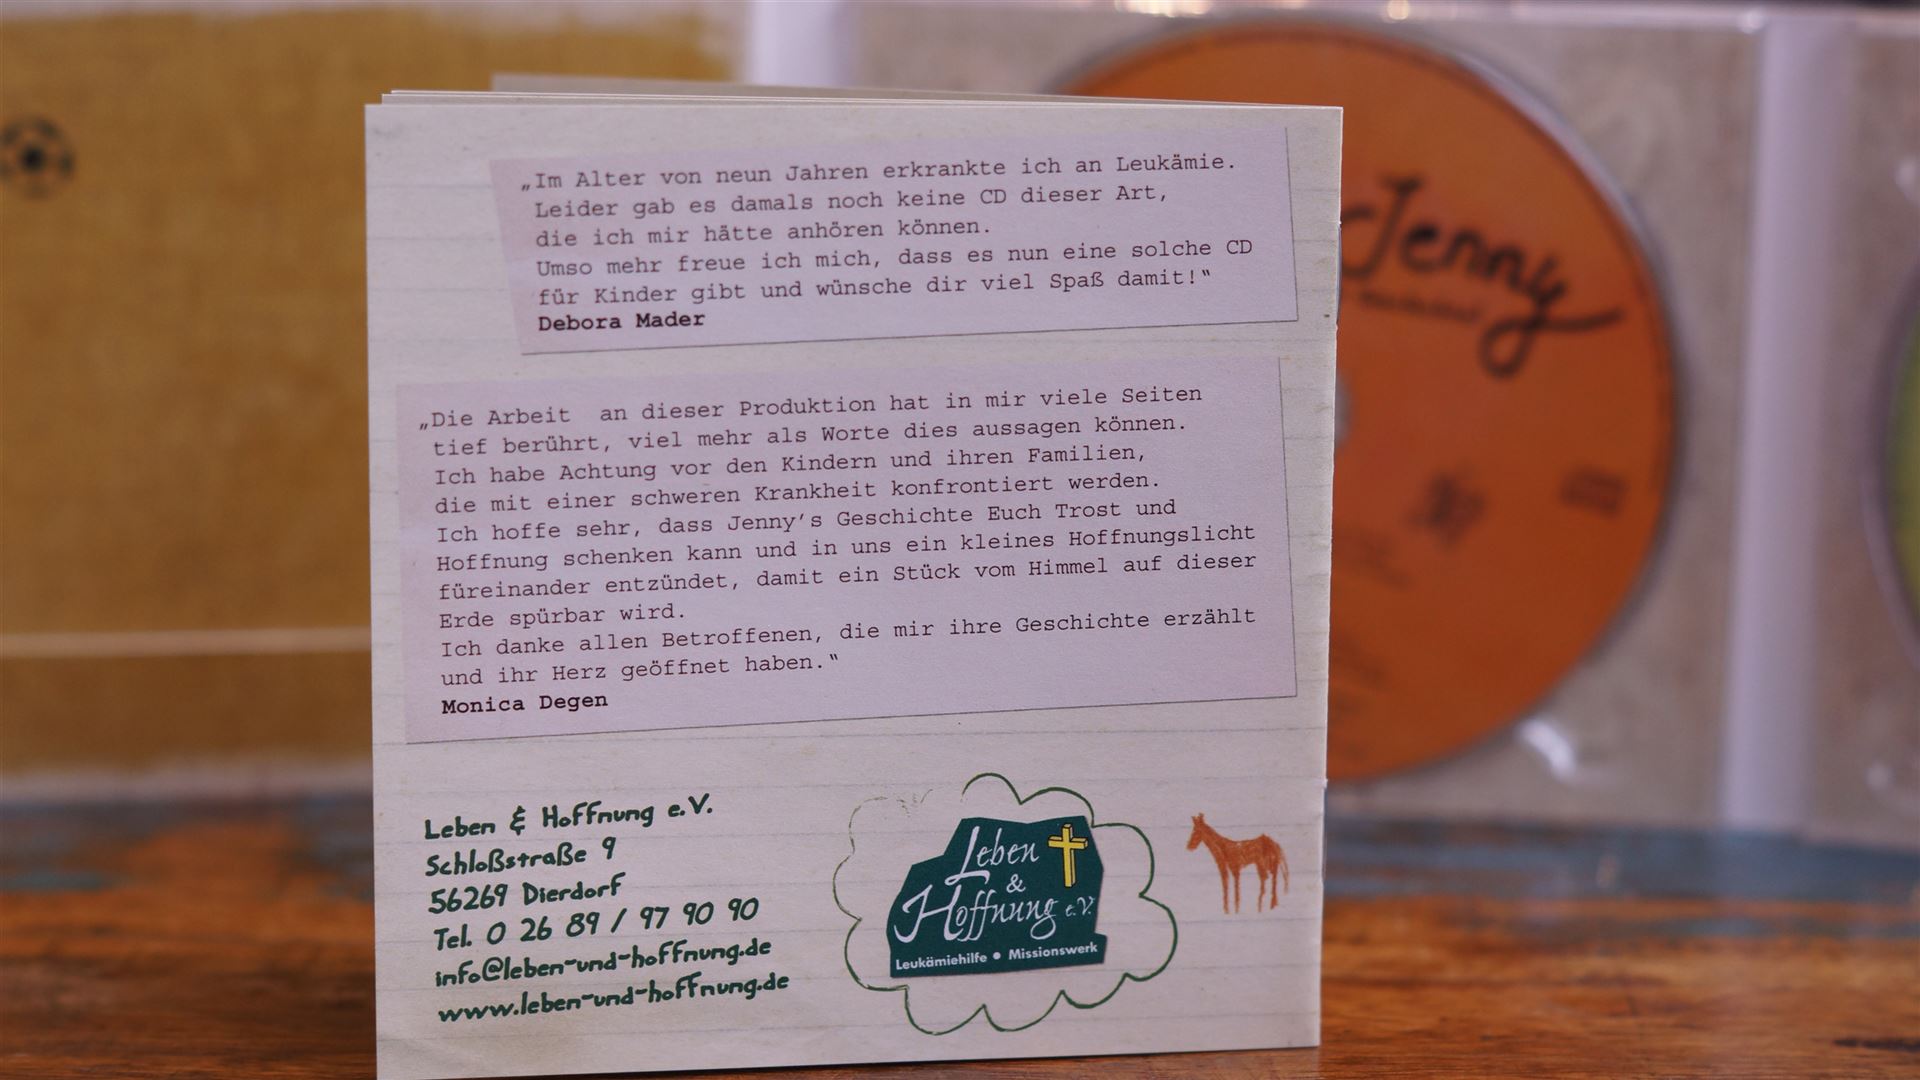 „Im Alter von neun Jahren erkrankte ich an Leukämie.
Leider gab es damals noch keine CD dieser Art,
die ich mir hätte anhören können.
Umso mehr freue ich mich, dass es nun eine solche CD
für Kinder gibt und wünsche dir viel Spaß damit!“
Debora Mader
„Die Arbeit an dieser Produktion hat in mir viele Seiten
tief berührt, viel mehr als Worte dies aussagen können.
Ich habe Achtung vor den Kindern und ihren Familien,
die mit einer schweren Krankheit konfrontiert werden.
Ich hoffe sehr, dass Jenny’s Geschichte Euch Trost und
Hoffnung schenken kann und in uns ein kleines Hoffnungslicht
füreinander entzündet, damit ein Stück vom Himmel auf dieser
Erde spürbar wird.
Ich danke allen Betroffenen, die mir ihre Geschichte erzählt
und ihr Herz geöffnet haben.“
Monica Degen
Leben & Hoffnung e.V.
Schloßstraße 9
56269 Dierdorf
Tel. 0 26 89 / 97 90 90
info@leben-und-hoffnung.de
www.leben-und-hoffnung.de
Leben
&
Hoffnung e.V.
Leukämiehilfe • Missionswerk
Jenny